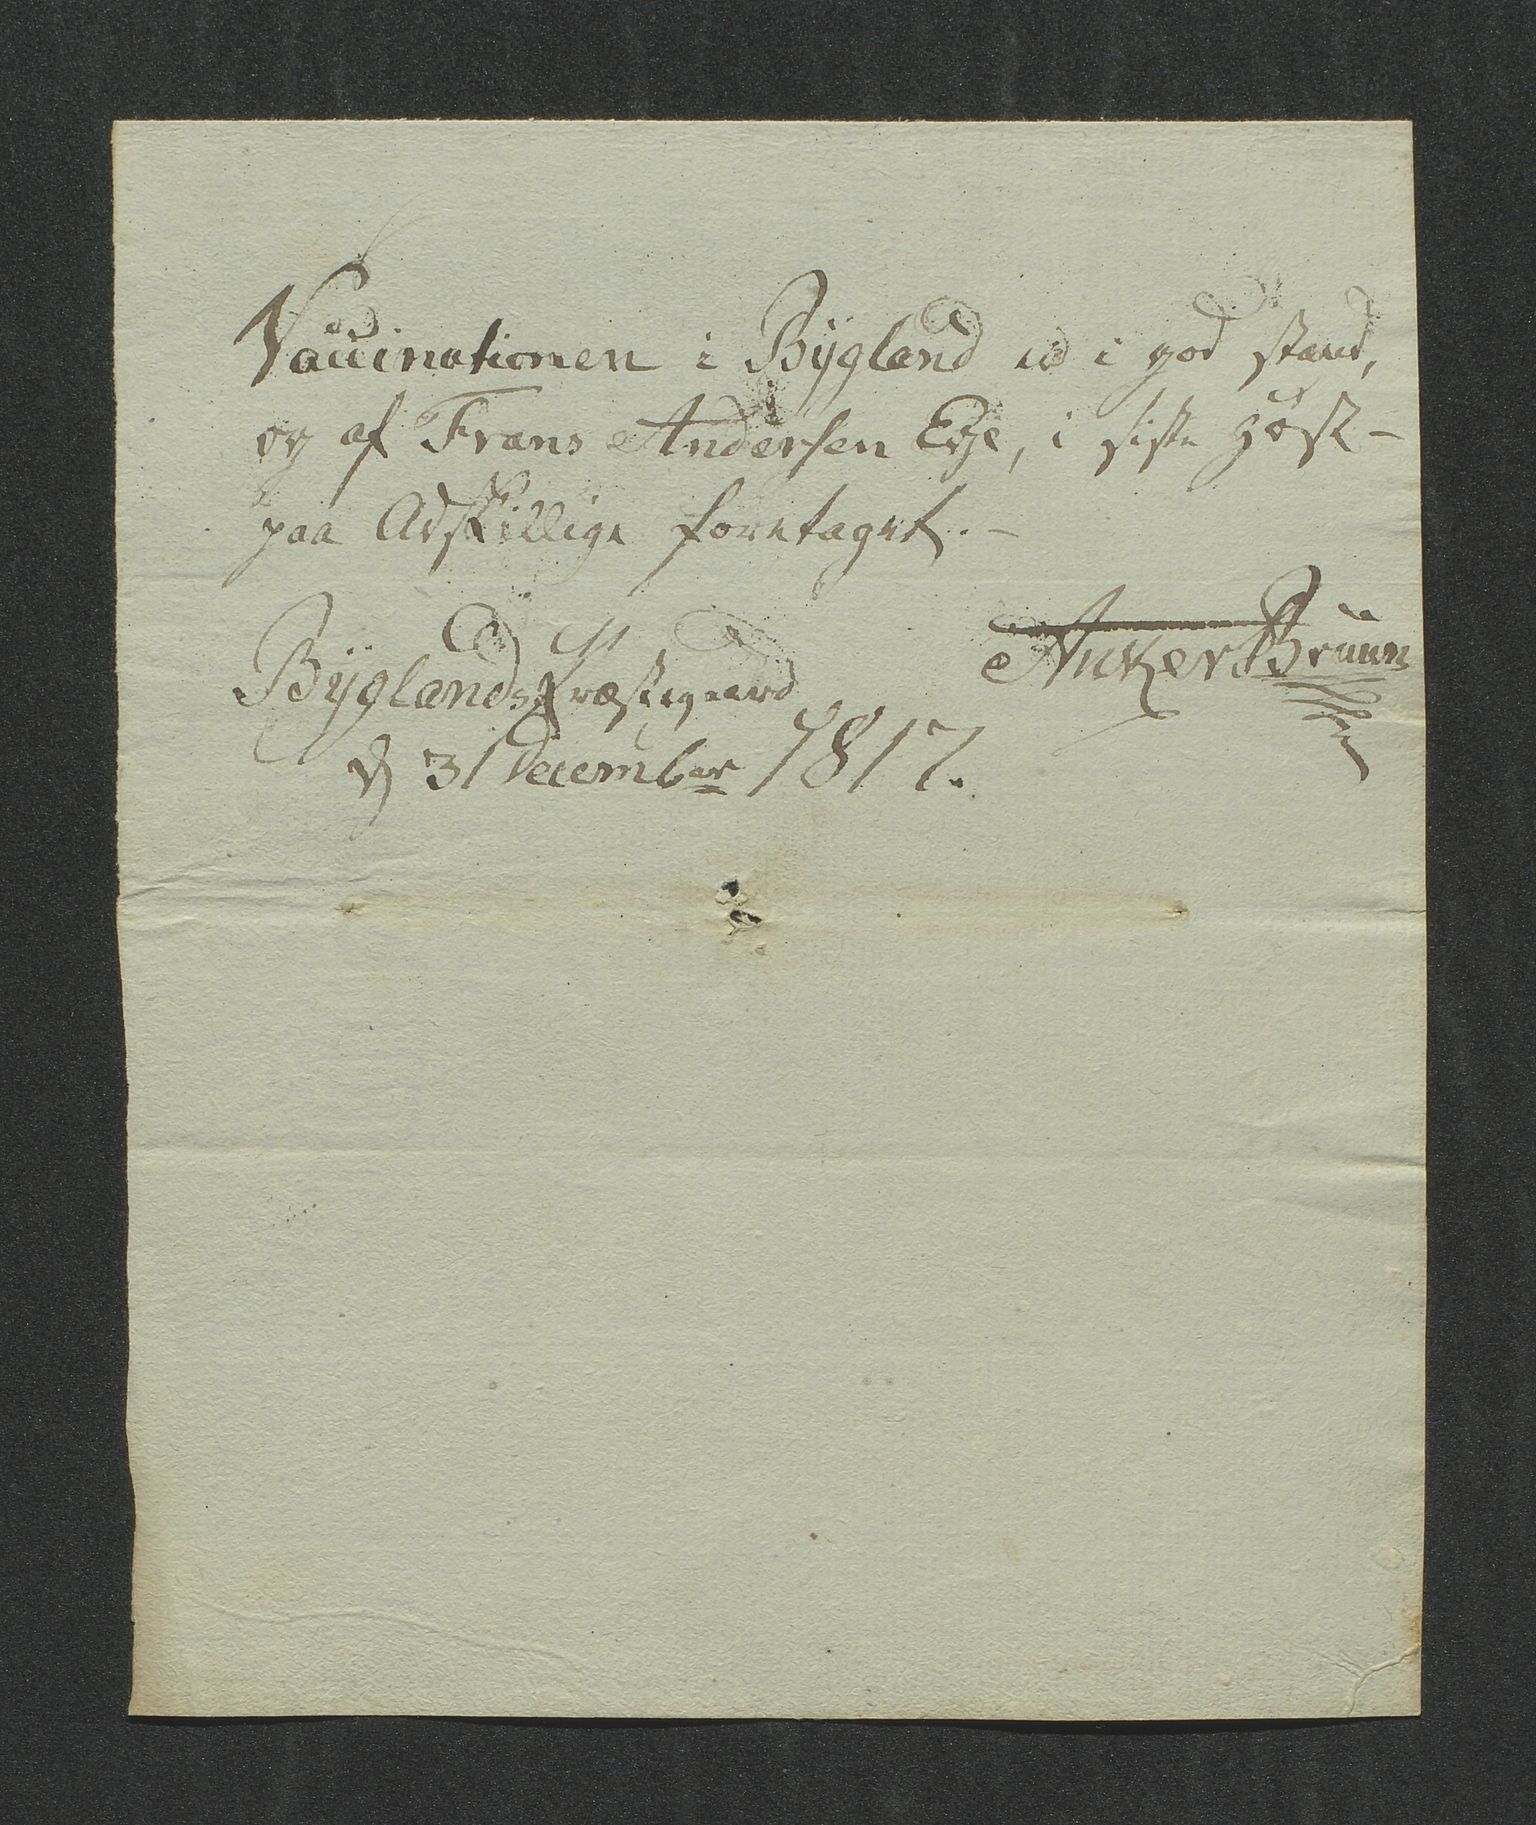 Vaccinationen i Bÿgland er i god stand,
og af Frans Andersen Ege, i siste Høst -
paa Adskillige foretaget. -
Anker Bruun
Bÿglands Præstegaard
d 31 December 1817.